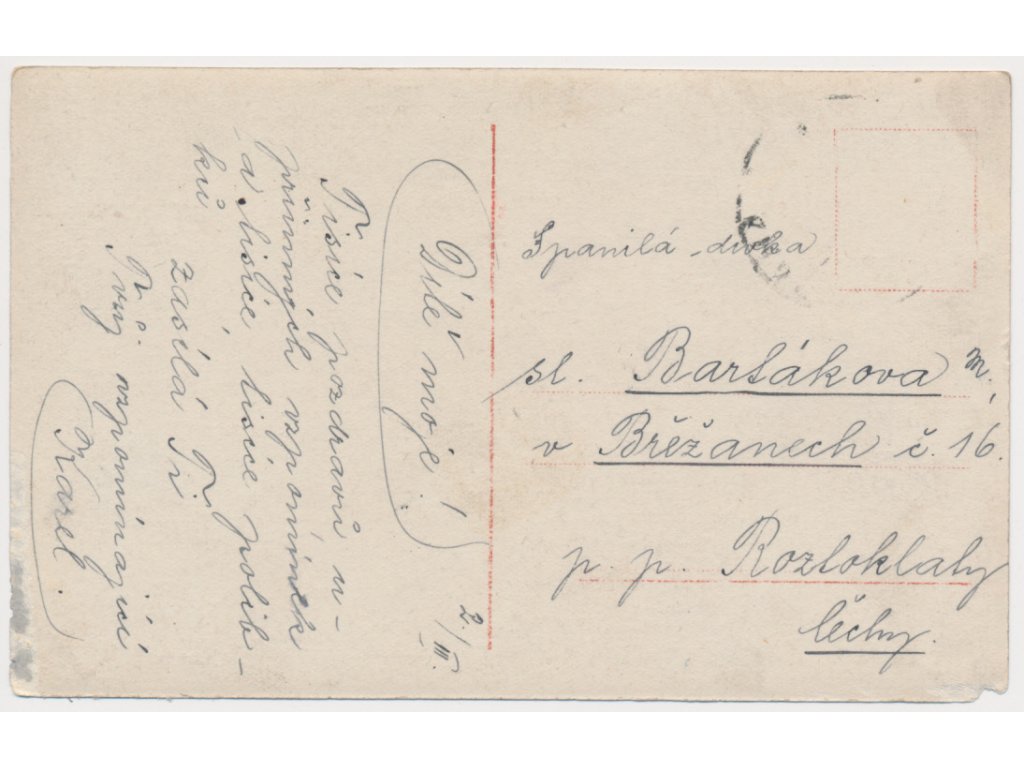 2./III.
Dítě moje!
Tisíce pozdravů u-
přímných vzpomínek
a tisíce, tisíce polib-
ků
zasílá Ti
Tvůj vzpomínající
Karel.
Spanilá dívka,
sl. Bartákova M.
v Břěžanech č. 16.
p. p. Roztoklaty
Čechy.